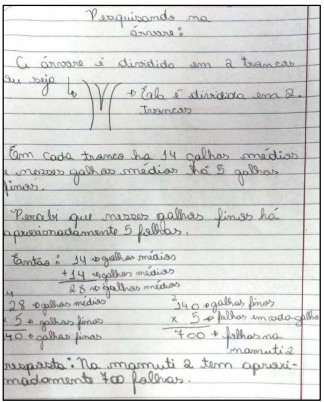 Pesquisando na
árvore:
A árvore é dividida em 2 troncos
ou seja → Ela é dividida em 2
troncos
Em cada tronco há 14 galhos médios
e nesses galhos médios há 5 galhos
finos.
Percebi que nesses galhos finos há
aproximadamente 5 folhas.
Então: 14 → galhos médios
+14 → galhos médios
28 → galhos médios
4
28 → galhos médios
x 5 → galhos finos
140 → galhos finos
2
140 → galhos finos
x 5 → folhas em cada galho
700 → folhas na
mamuti 2
resposta: Na mamuti 2 tem aproxi-
madamente 700 folhas.